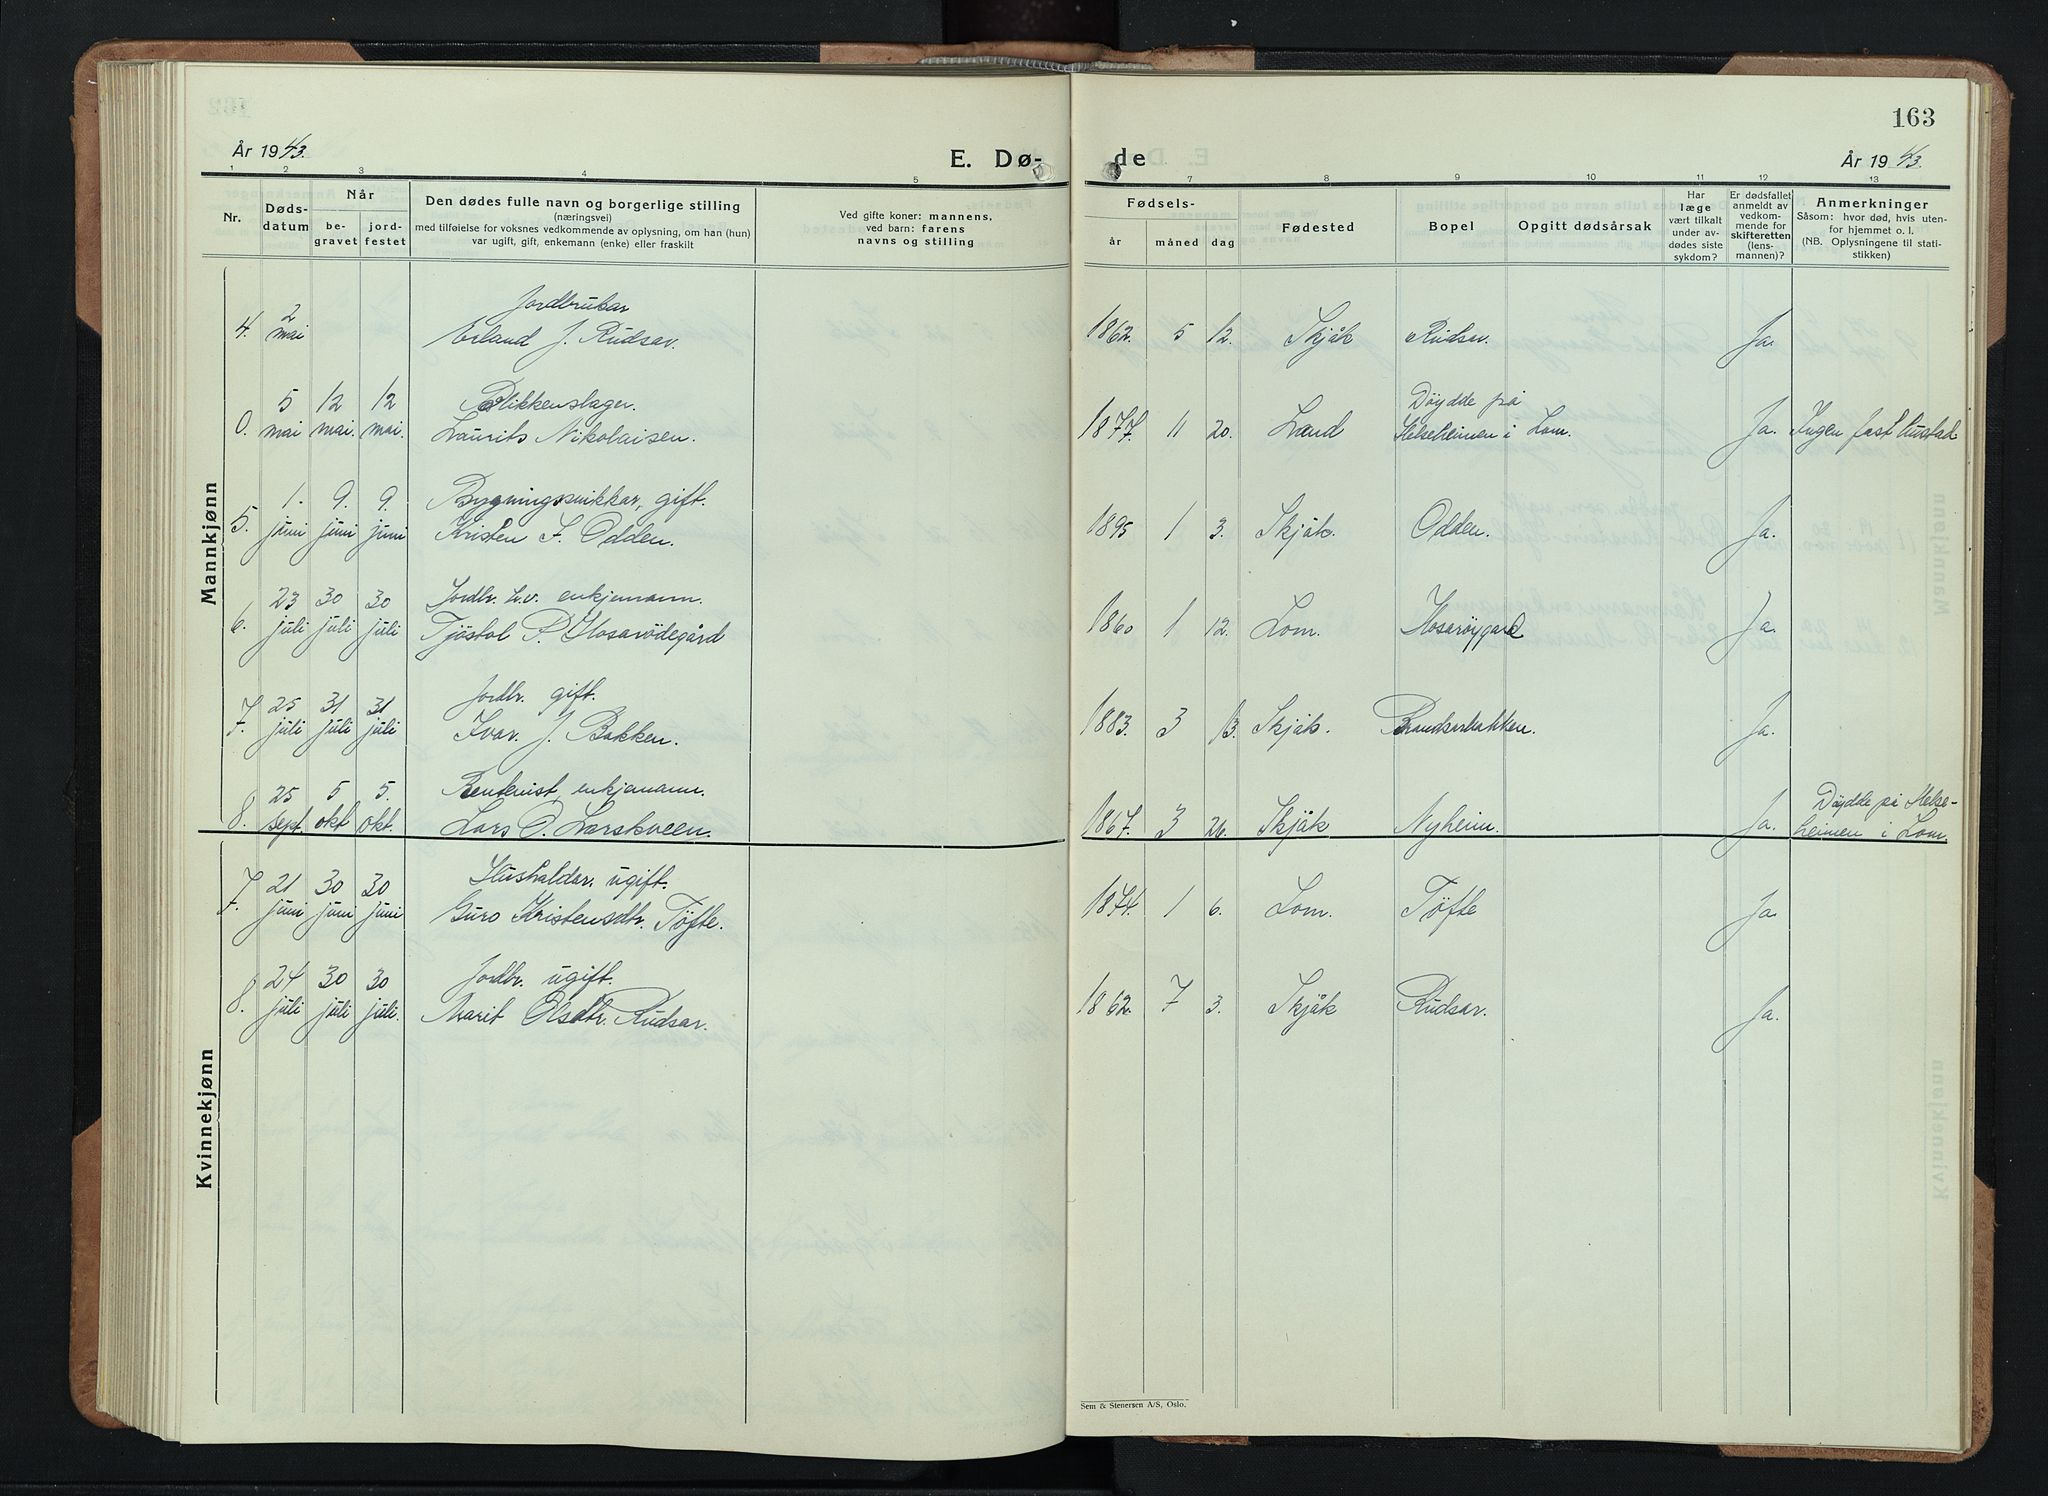 163
År 1943.
E. Dø-
de
År 1943.
1 2 3 4 5 7 8 9 10 11 12 13
Nr.
Døds-
datum
Når
be-
gravet
jord-
festet
Den dødes fulle navn og borgerlige stilling
(næringsvei)
med tilføielse for voksnes vedkommende av oplysning, om han (hun)
var ugift, gift, enkemann (enke) eller fraskilt
Ved gifte koner: mannens,
ved barn: farens
navns og stilling
Fødsels-
år måned dag
Fødested
Bopel
Opgitt dødsårsak
Har
læge
vært tilkalt
under av-
dødes siste
sykdom?
Er dødsfallet
anmeldt av
vedkom-
mende for
skifteretten
(lens-
mannen)?
Anmerkninger
Såsom: hvor død, hvis uten-
for hjemmet o. l.
(NB. Oplysningene til stati-
stikken)
Mannkjønn
2 Jordbrukar
4. mai Erland J. Rudsar. 1862. 5 12. Skjåk Rudsar. Ja.
5 12 12 Blikkenslager. Döydde på
0. mai mai. mai. Laurits Nikolaisen. 1877. 11 20. Land Helseheimen i Lom. Ja. Ingen fast bustad
1. 9. 9. Bygningssnikkar, gift.
5. juni juni juni Kristen F. Odden. 1895 1 3. Skjåk. Odden. Ja.
23 30 30 Jordbr. enkjemann.
6. juli juli juli Tjöstol P. Hosarödegård 1860 1 12. Lom. Hosaröygard Ja.
25 31 31 Jordbr. gift.
7. juli juli juli Ivar J. Bakken. 1883. 3 13. Skjåk. Brandsarbakken. Ja.
25 5 5. Rentenist, enkjemann. Döydde på Helse-
8. sept. okt okt. Lars O. Larskveen. 1867. 3 26. Skjåk Nyheim. Ja. heimen i Lom.
Kvinnekjønn
21 30 30 Hushaldar. ugift.
7. juni juni juni Guro Kristensdtr. Töfte. 1874. 1 6. Lom. Töfte Ja.
24 30 30 Jordbr. ugift.
8. juli juli juli. Marit Olsdtr. Rudsar. 1862. 7 3. Skjåk Rudsar. Ja.
Sem & Stenersen A/S, Oslo.